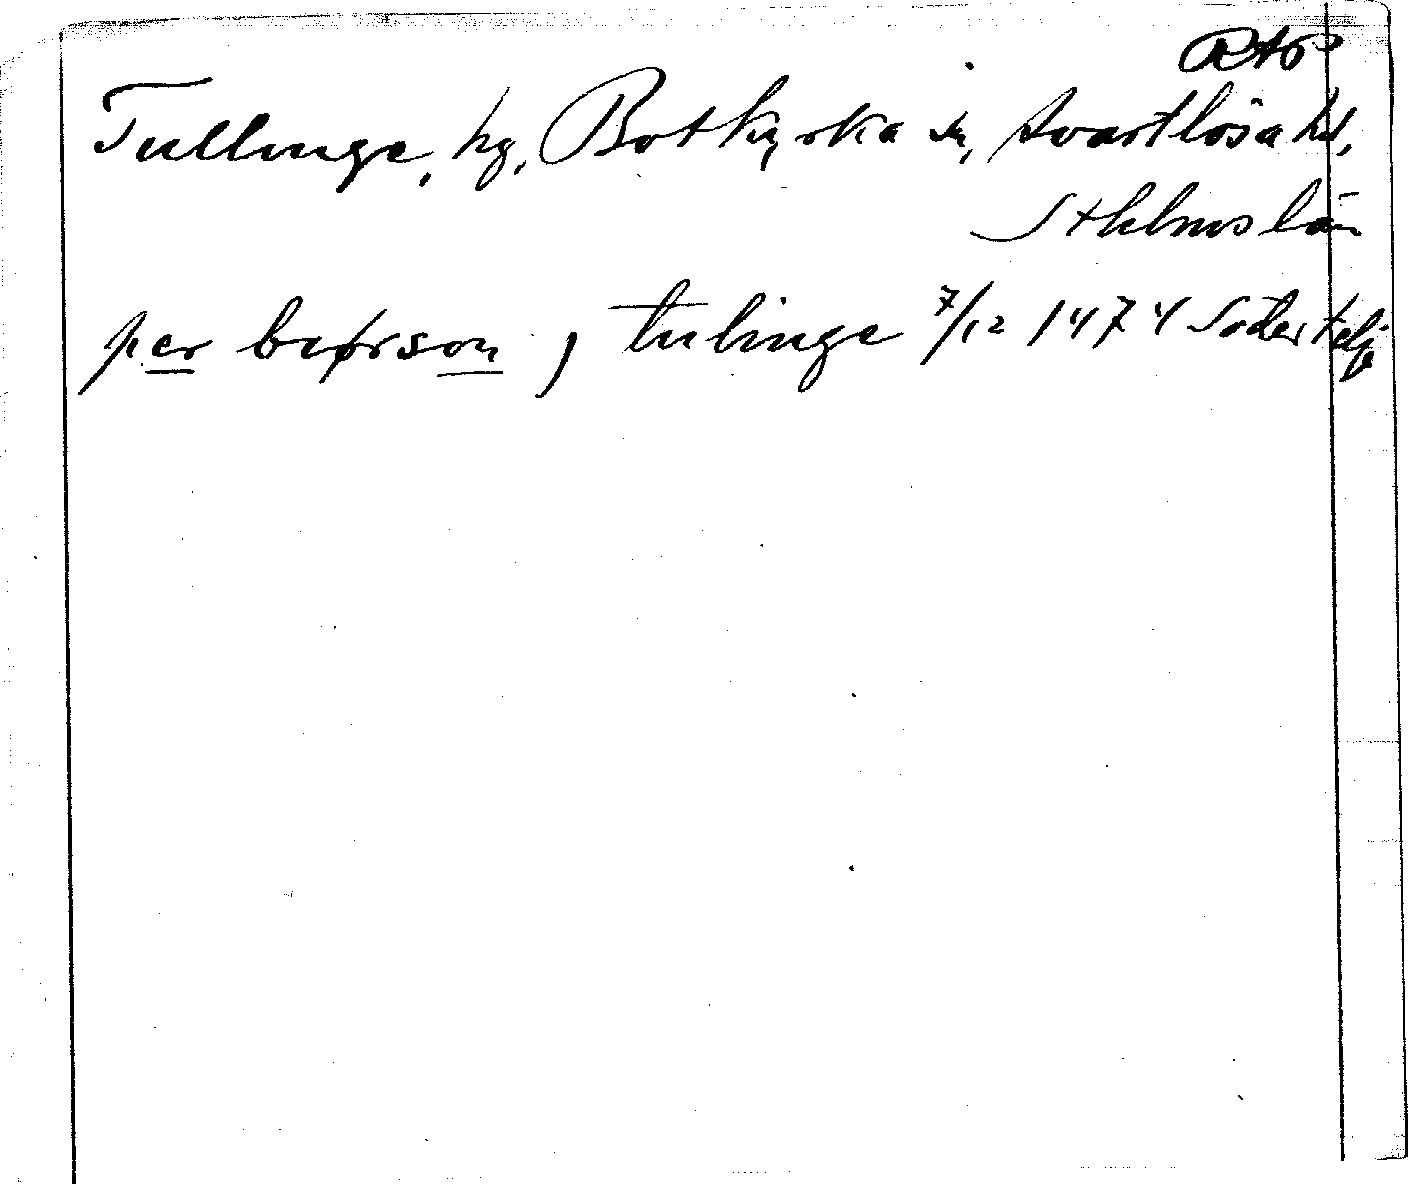 RAP
Tullinge, hg, Botkyrka sn, Svartlösa hd,
Sthlms län
per biørson j tulinge 7/12 1474 Södertelje